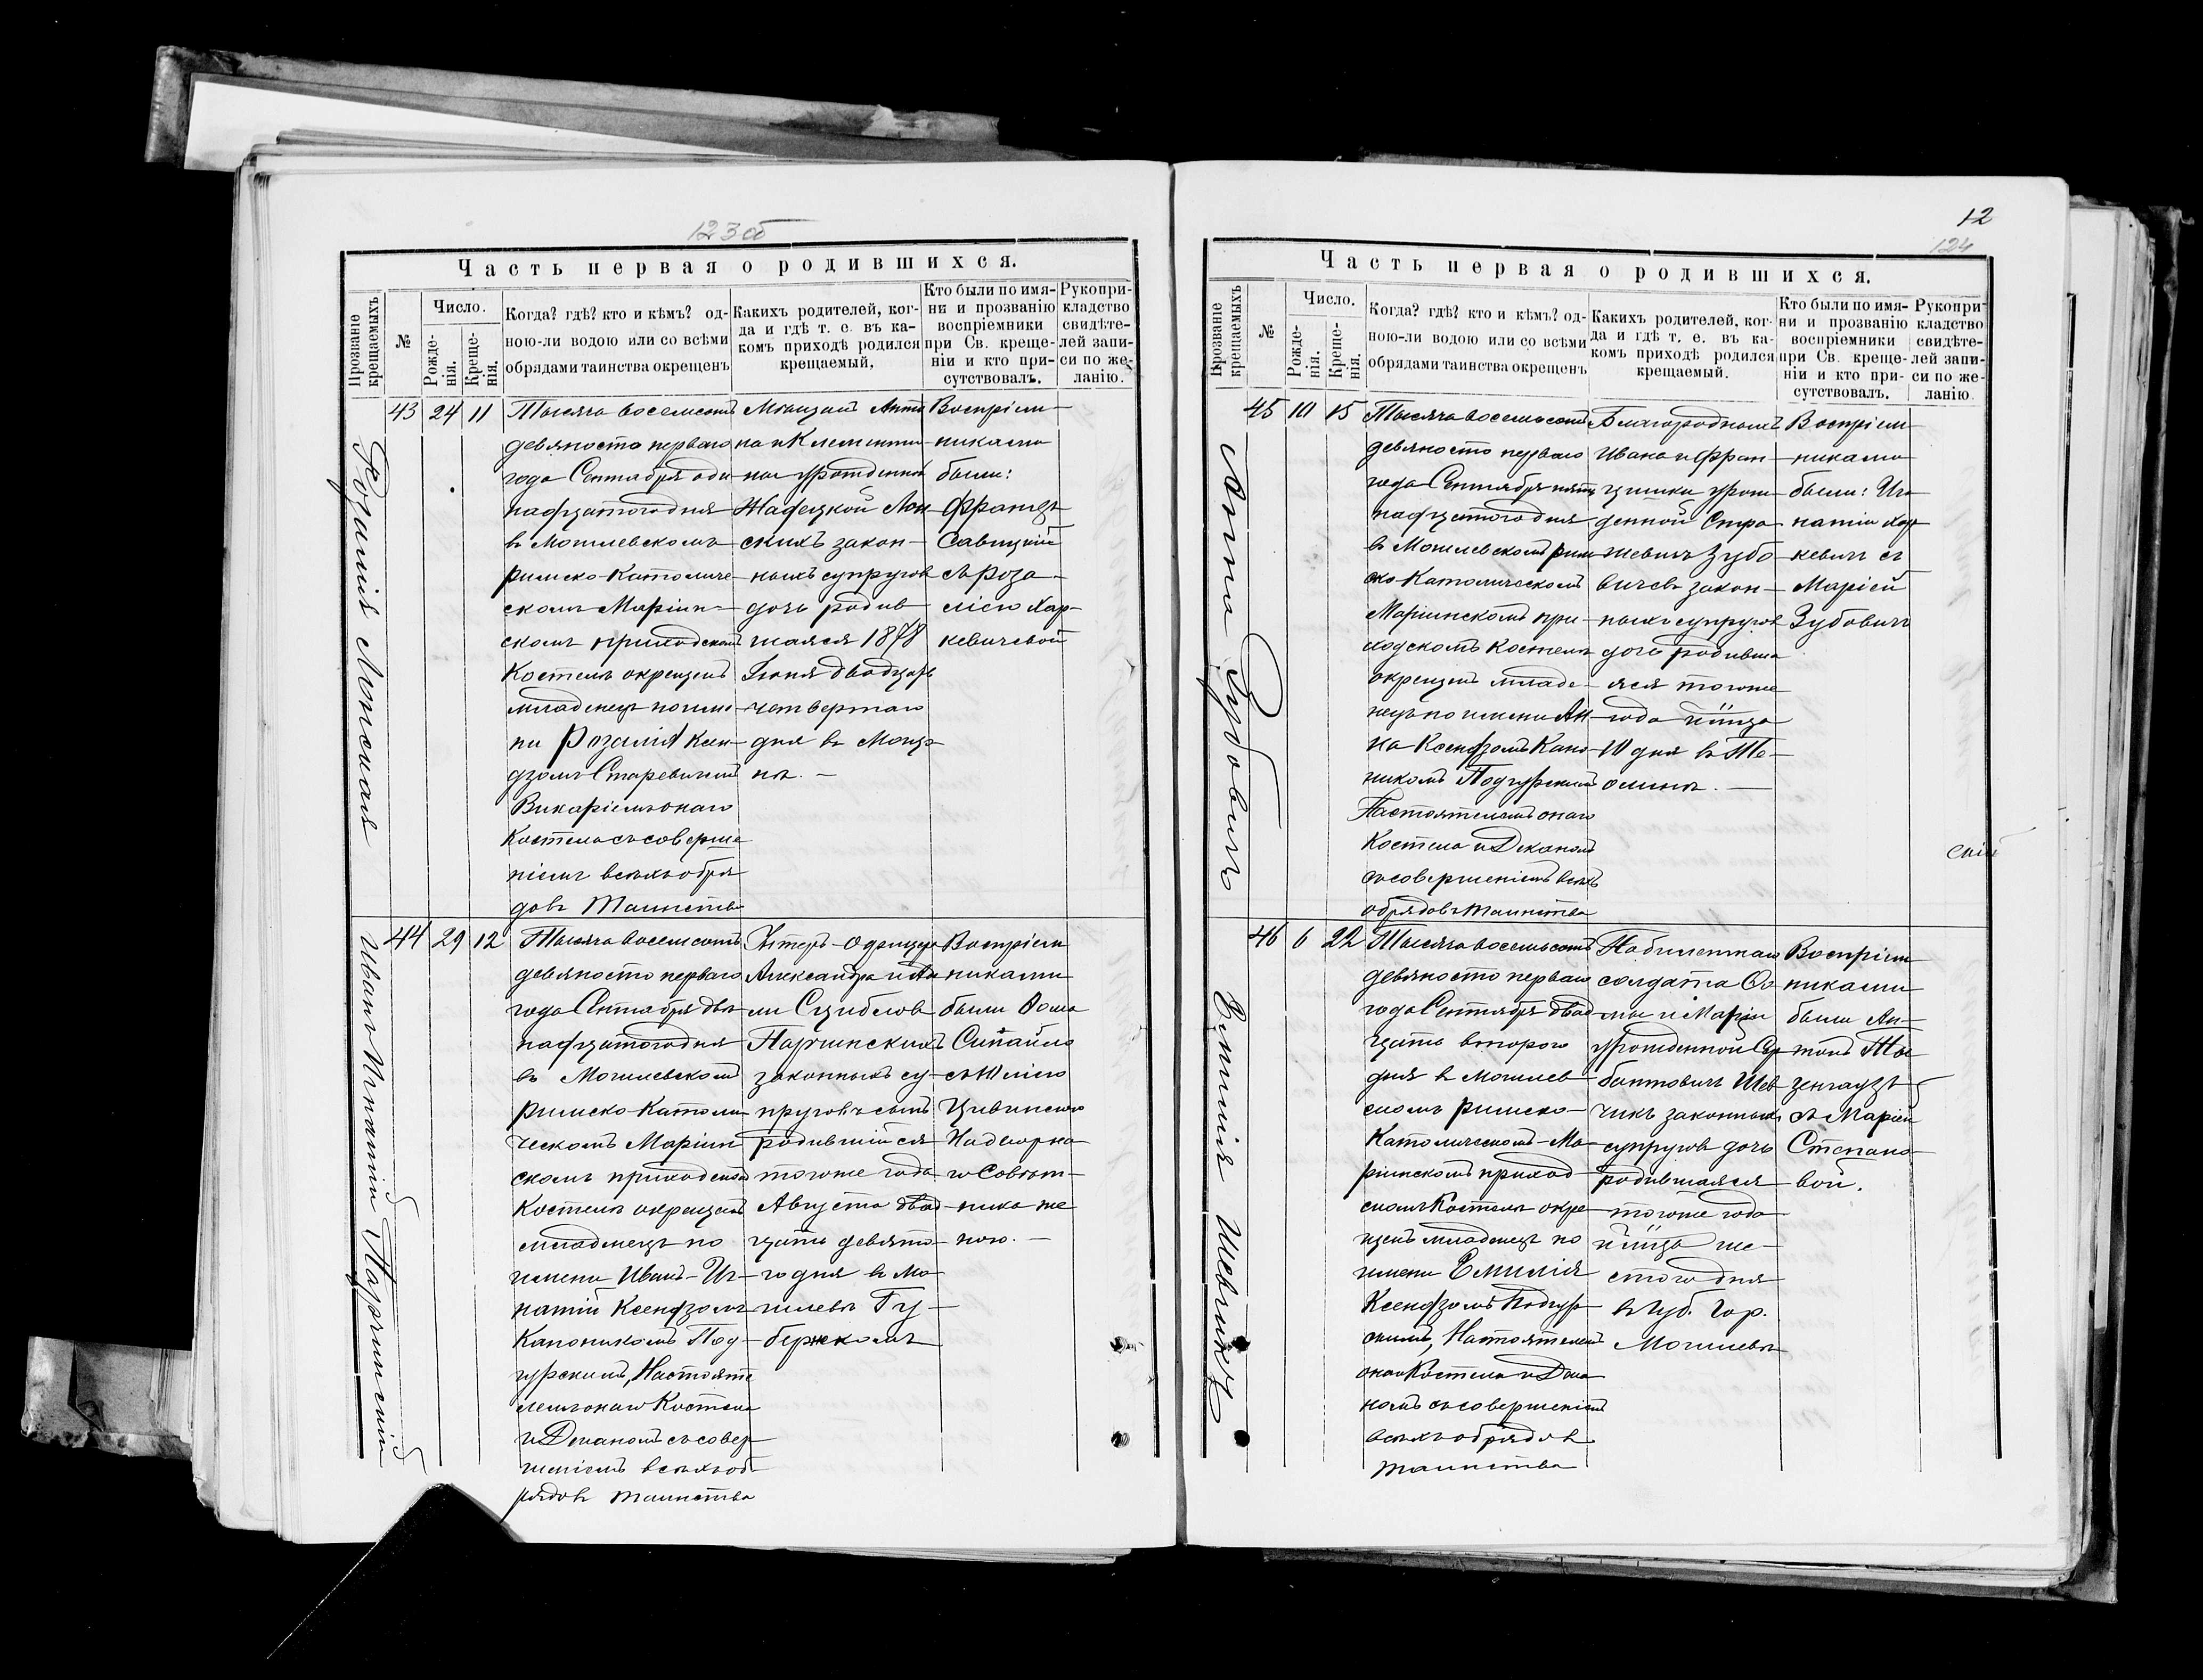 123об
Часть первая о родившихся.
Прозваніе крещаемыхъ
№
Число.
Рожде-
нія.
Креще-
нія.
Когда? гдѣ? кто и кѣмъ? од-
ною-ли водою или со всѣми
обрядами таинства окрещенъ
Какихъ родителей, ког-
да и гдѣ т. е. въ ка-
комъ приходѣ родился
крещаемый.
Кто были по имя-
ни и прозванію
воспріемники
при Св. креще-
ніи и кто при-
сутствовалъ.
Рукопри-
кладство
свидѣте-
лей запи-
си по же-
ланію.
Розалія
43 24 11
Тысяча восемсотъ
девяносто перваго
года Сентября оди
надцатого дня
въ Могилевскомъ
римско-Католиче-
скомъ Маріин-
скомъ приходскомъ
Костелѣ окрещенъ
младенецъ по име-
ни Розалія Ксен-
дзомъ Старевичемъ
Викаріемъ онаго
Костела съ соверше
ніемъ всѣхъ обря
довъ Таинства
Мѣщанъ Анто
на и Клементи-
ны урожденной
скихъ закон-
ныхъ супруговъ
дочь родив
шаяся 1878
Іюня двадцать
четвертаго
дня въ
Воспріем-
никами
были:
Францъ
Савицкій
съ Роза-
ліею Хар-
кевичевой
Иванъ Игнатій Парчинскій
44 29 12
Тысяча восемсотъ
девяносто перваго
года Сентября двѣ
надцатого дня
въ Могилевскомъ
римско-Католи-
ческомъ Маріин
скомъ приходскомъ
Костелѣ окрещенъ
младенецъ по
имени Иванъ-Иг-
натій Ксендзомъ
Каноникомъ Под-
гурскимъ, Настояте
лемъ онаго Костела
и Деканомъ съ совер
шеніемъ всѣхъ об-
рядовъ таинства
Унтеръ-Офицера
Александра и
Парчинскихъ
законныхъ су-
пруговъ сынъ
родившійся
тогоже года
Августа двад
цать девято-
го дня въ Мо
гилевѣ Гу-
бернскомъ
Воспріем
никами
были Ѳома
Сипайло
съ Юліею
Цивинскою
Надворна
го Совѣт-
ника же
ною.
12
124
Часть первая о родившихся.
Прозваніе крещаемыхъ
№
Число.
Рожде-
нія.
Креще-
нія.
Когда? гдѣ? кто и кѣмъ? од-
ною-ли водою или со всѣми
обрядами таинства окрещенъ
Какихъ родителей, ког-
да и гдѣ т. е. въ ка-
комъ приходѣ родился
крещаемый.
Кто были по имя-
ни и прозванію
воспріемники
при Св. креще-
ніи и кто при-
сутствовалъ.
Рукопри-
кладство
свидѣте-
лей запи-
си по же-
ланію.
Анна Зубовичъ
45 10 15
Тысяча восемьсотъ
девяносто перваго
года Сентября пят
надцатого дня
въ Могилевскомъ рим
ско-Католическомъ
Маріинскомъ при-
ходскомъ Костелѣ
окрещенъ младе-
нецъ по имени Ан-
на Ксендзомъ Кано-
никомъ Подгурскимъ
Настоятелемъ онаго
Костела и Деканомъ
съ совершеніемъ всѣхъ
обрядовъ таинства
Благородныхъ
Ивана и Фран-
цишки урож-
денной
Зубо-
вичевъ закон-
ныхъ супруговъ
дочь родивша
яся тогоже
года
10 дня въ
Воспріем
никами
были: Иг-
натій Хар
кевичъ съ
Маріей
Зубовичъ
скій
Эмилія Шевчикъ
46 6 22
Тысяча восемьсотъ
девяносто перваго
года Сентября двад
цать второго
дня въ Могилев-
скомъ римско-
Католическомъ-Ма-
ріинскомъ приход
скомъ Костелѣ окре
щенъ младенецъ по
имени Емилія
Ксендзомъ Подгур
скимъ, Настоятелемъ
онаго Костела и Дека
номъ съ совершеніемъ
всѣхъ обрядовъ
таинства
солдата
мы и Маріи
урожденной
Шев
чикъ законныхъ
супруговъ дочь
родившаяся
тогоже года
ше-
стого дня
въ губ. гор.
Могилевѣ
Воспріем
никами
были Ан-
тонъ
съ Маріей
Степано-
вой.